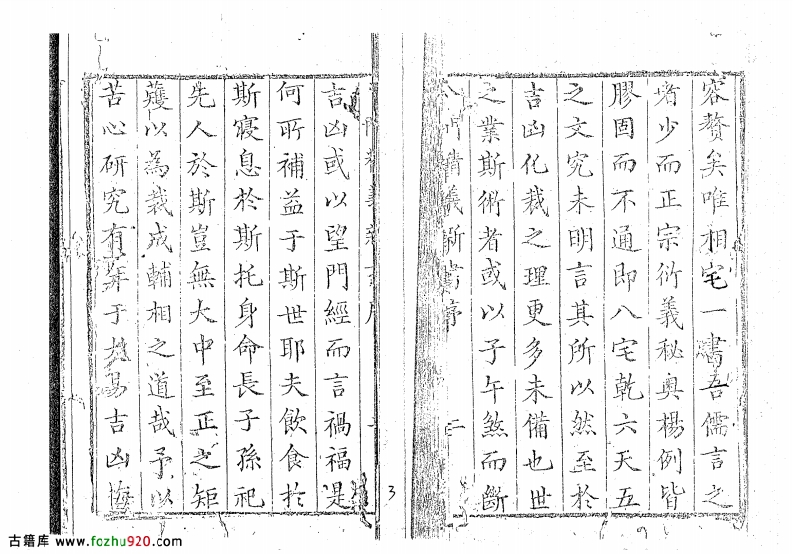 容贅矣唯相宅一書吾儒言之
者少而正宗衍義秘奥楊例皆
膠固而不通即八宅乾六天五
之文究未明言其所以然至於
吉凶化裁之理更多未備也世
之業斯術者或以子午煞而斷
義新書序 二
吉凶或以望門經而言禍福是
何所補益于斯世耶夫飲食於
斯寢息於斯托身命長子孫祀
先人於斯豈無大中至正之矩
矱以為裁成輔相之道哉予以
苦心研究有年于易吉凶悔
3
古籍库 www.fozhu920.com